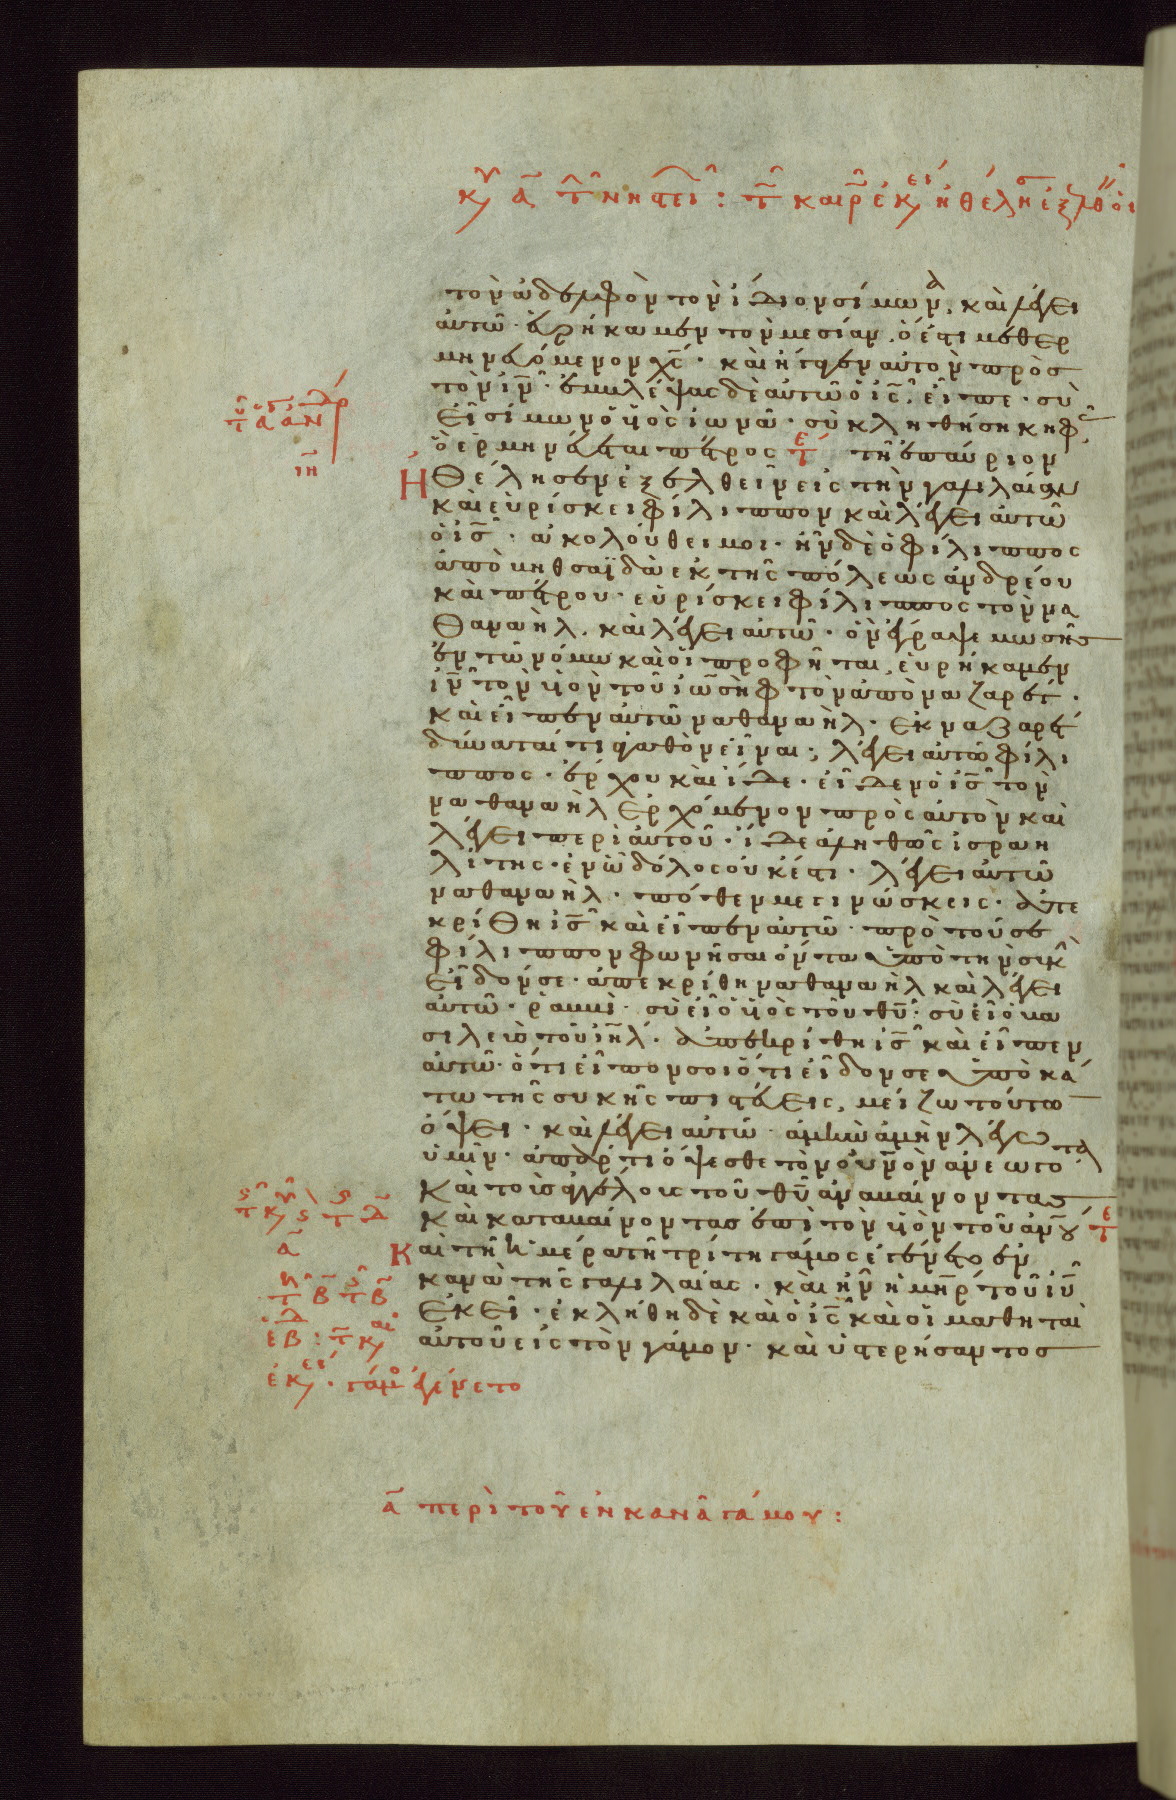 κυ α τ νηστει : τ καιρ εκει ηθελησ εξελθ ο ι
τὸν ἀδελφὸν τὸν ἴδιον σίμωνα, καὶ λέγει
αὐτῶ· εὑρήκαμεν τὸν μεσίαν, ὅ ἐστι μεθερ
μηνευόμενον χς· καὶ ἤγαγεν αὐτὸν πρὸς
τὸν ιν· ἐμβλέψας δὲ αὐτῶ ὁ ις, εἶπε· σὺ
εἶ σίμων ὁ υἱὸς ἰωνᾶ· σὺ κληθήση κηφᾶς
ὃ ἑρμηνεύεται πέτρος τε τῆ ἐπαύριον
Ἠθέλησεν ἐξελθεῖν εἰς τὴν γαλιλαίαν
καὶ εὑρίσκει φίλιππον καὶ λέγει αὐτῶ
ὁ ις· ἀκολούθει μοι· ἦν δὲ ὁ φίλιππος
ἀπὸ βηθσαϊδὰ ἐκ τῆς πόλεως ἀνδρέου
καὶ πέτρου· εὑρίσκει φίλιππος τὸν να
θαναὴλ, καὶ λέγει αὐτῶ· ὃν ἔγραψε μωσῆς
ἐν τῶ νόμω καὶ οἱ προφῆται, εὑρήκαμεν
ιν τὸν υἱὸν τοῦ ἰωσὴφ τὸν ἀπὸ ναζαρέτ·
καὶ εἶπεν αὐτῶ ναθαναὴλ· ἐκ ναζαρέτ
δύναταί τι ἀγαθὸν εἶναι; λέγει αὐτῶ φίλι
ππος· ἔρχου καὶ ἴδε· εἶδεν ὁ ις τὸν
ναθαναὴλ ἐρχόμενον πρὸς αὐτὸν καὶ
λέγει περὶ αὐτοῦ· ἴδε ἀληθῶς ἰσραη
λίτης· ἐν ὧ δόλος οὐκ ἔστι· λέγει αὐτῶ
ναθαναὴλ· πόθεν με γινώσκεις· ἀπε
κρίθη ις καὶ εἶπεν αὐτῶ· πρὸ τοῦ σε
φίλιππον φωνῆσαι ὄντα ὑπὸ τὴν συκῆ
εἶδόν σε· ἀπεκρίθη ναθαναὴλ καὶ λέγει
αὐτῶ· ῥαββὶ· σὺ εἶ ὁ υἱὸς τοῦ θυ· σὺ εἶ ὁ βα
σιλεὺς τοῦ ιηλ· ἀπεκρίθη ις καὶ εἶπεν
αὐτῶ· ὅτι εἶπον σοι ὅτι εἶδόν σε ὑποκά
τω τῆς συκῆς πιστεύεις, μείζω τούτω
ὄψει· καὶ λέγει αὐτῶ ἀμὴν ἀμὴν λέγω
ὑμῖν· ἀπάρτι ὄψεσθε τὸν οὐνον ἀνεωγότα
καὶ τοὺς ἀγγέλους τοῦ θυ ἀναβαίνοντας
καὶ καταβαίνοντας ἐπὶ τὸν υἱὸν τοῦ ανου τε
Καὶ τῆ ἡμέρα τῆ τρίτη γάμος ἐγένετο ἐν
κανᾶ τῆς γαλιλαίας· καὶ ἦν ἡ μηρ τοῦ ιυ
ἐκεῖ· ἐκλήθη δὲ καὶ ὁ ις καὶ οἱ μαθηταὶ
αὐτοῦ εἰς τὸν γάμον· καὶ ὑστερήσαντος
εκει· γάμο ἐγένετο
α περὶ τοῦ ἐν κανᾶ γάμου :